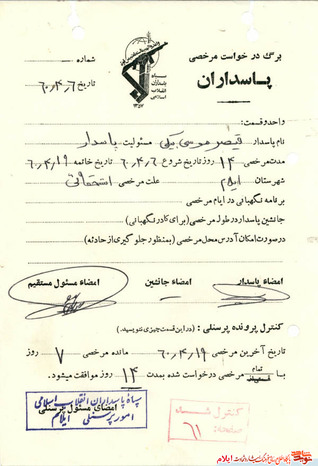 برگ درخواست مرخصی
پاسداران
سپاه
پاسداران
انقلاب
اسلامی
شماره
تاریخ ۶۰/۴/۶
واحد و قسمت:
نام پاسدار قیصر موسی بیگی مسئولیت پاسدار
مدت مرخصی ۱۴ روز تاریخ شروع ۶۰/۴/۶ تاریخ خاتمه ۶۰/۴/۱۹
شهرستان ایلام علت مرخصی استحقاقی
برنامه نگهبانی در ایام مرخصی
جانشین پاسدار در طول مرخصی (برای کادر نگهبانی)
در صورت امکان آدرس محل مرخصی (بمنظور جلوگیری از حادثه)
امضاء پاسدار امضاء جانشین امضاء مسئول مستقیم
کنترل پرونده پرسنلی: (در این قسمت چیزی ننویسید.)
تاریخ آخرین مرخصی ۶۰/۴/۱۹ مانده مرخصی ۷ روز
با تمام مرخصی درخواست شده بمدت ۱۴ روز موافقت میشود.
سپاه پاسداران انقلاب اسلامی
امضای مسئول پرسنلی
امور پرسنلی ایلام
کنترل شد
صفحه: ۶۱